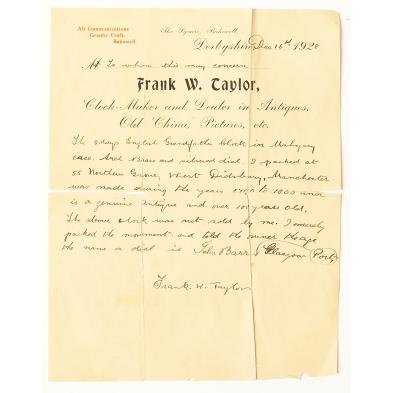 All Communications
Granby Croft,
Bakewell
The Square, Bakewell,
Derbyshire, Dec 16th 1920
To whom this may concern
Frank W. Taylor,
Clock-Maker and Dealer in Antiques,
Old China, Pictures, etc.
The 8 days English Grandfather Clock in Mahogany
case. Arch Brass and silvered dial I packed at
55 Northen Grove, West Didsbury, Manchester
was made during the years 1790 to 1800 and
is a genuine Antique and over 100 years old.
The above clock was not sold by me. I merely
packed the movement and told the owner the age
the name on dial is John Barr (Glasgow Port)
Frank. W. Taylor